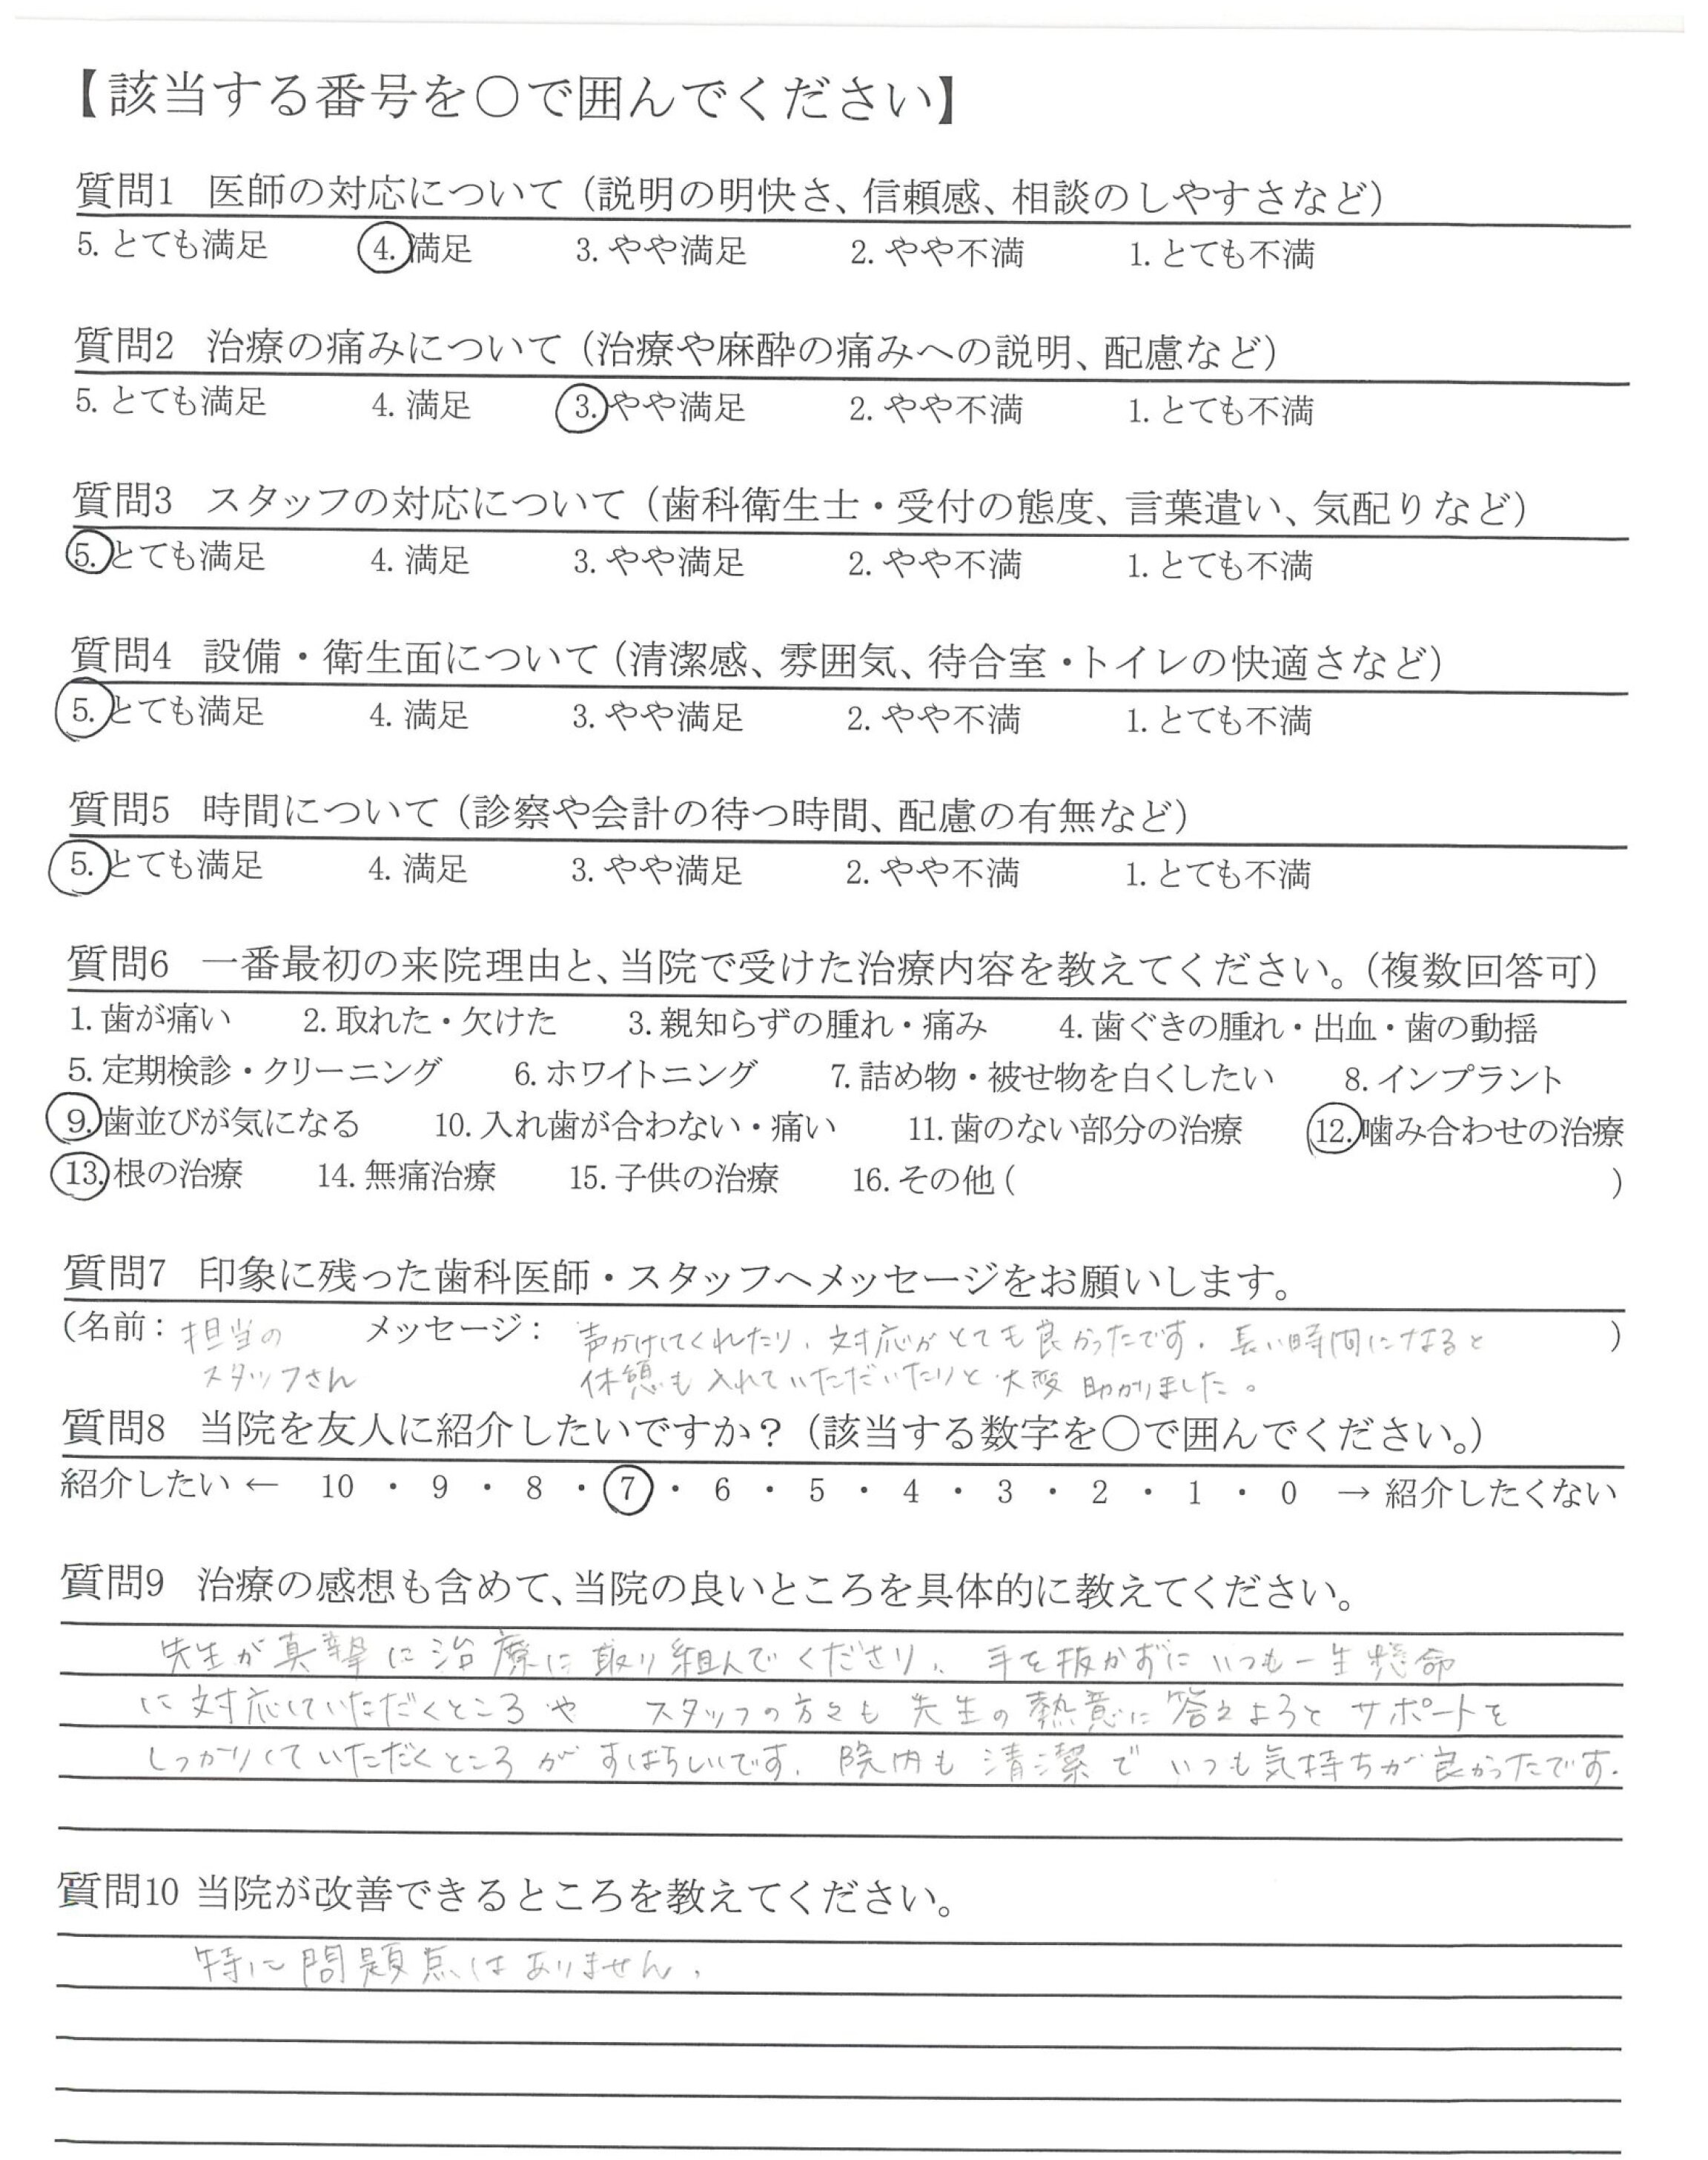 【該当する番号を○で囲んでください】
質問1 医師の対応について（説明の明快さ、信頼感、相談のしやすさなど）
5. とても満足 4. 満足 3. やや満足 2. やや不満 1. とても不満
質問2 治療の痛みについて（治療や麻酔の痛みへの説明、配慮など）
5. とても満足 4. 満足 3. やや満足 2. やや不満 1. とても不満
質問3 スタッフの対応について（歯科衛生士・受付の態度、言葉遣い、気配りなど）
5. とても満足 4. 満足 3. やや満足 2. やや不満 1. とても不満
質問4 設備・衛生面について（清潔感、雰囲気、待合室・トイレの快適さなど）
5. とても満足 4. 満足 3. やや満足 2. やや不満 1. とても不満
質問5 時間について（診察や会計の待つ時間、配慮の有無など）
5. とても満足 4. 満足 3. やや満足 2. やや不満 1. とても不満
質問6 一番最初の来院理由と、当院で受けた治療内容を教えてください。（複数回答可）
1. 歯が痛い 2. 取れた・欠けた 3. 親知らずの腫れ・痛み 4. 歯ぐきの腫れ・出血・歯の動揺
5. 定期検診・クリーニング 6. ホワイトニング 7. 詰め物・被せ物を白くしたい 8. インプラント
9. 歯並びが気になる 10. 入れ歯が合わない・痛い 11. 歯のない部分の治療 12. 噛み合わせの治療
13. 根の治療 14. 無痛治療 15. 子供の治療 16. その他（ ）
質問7 印象に残った歯科医師・スタッフへメッセージをお願いします。
（名前： 担当の メッセージ： 声かけしてくれたり、対応がとても良かったです。長い時間になると ）
スタッフさん 休憩も入れていただいたりと大変助かりました。
質問8 当院を友人に紹介したいですか？（該当する数字を○で囲んでください。）
紹介したい ← 10 ・ 9 ・ 8 ・ 7 ・ 6 ・ 5 ・ 4 ・ 3 ・ 2 ・ 1 ・ 0 → 紹介したくない
質問9 治療の感想も含めて、当院の良いところを具体的に教えてください。
先生が真摯に治療に取り組んでくださり、手を抜かずにいつも一生懸命
に対応していただくところや スタッフの方々も先生の熱意に答えようとサポートを
しっかりしていただくところがすばらしいです。院内も清潔でいつも気持ちが良かったです。
質問10 当院が改善できるところを教えてください。
特に問題点はありません。